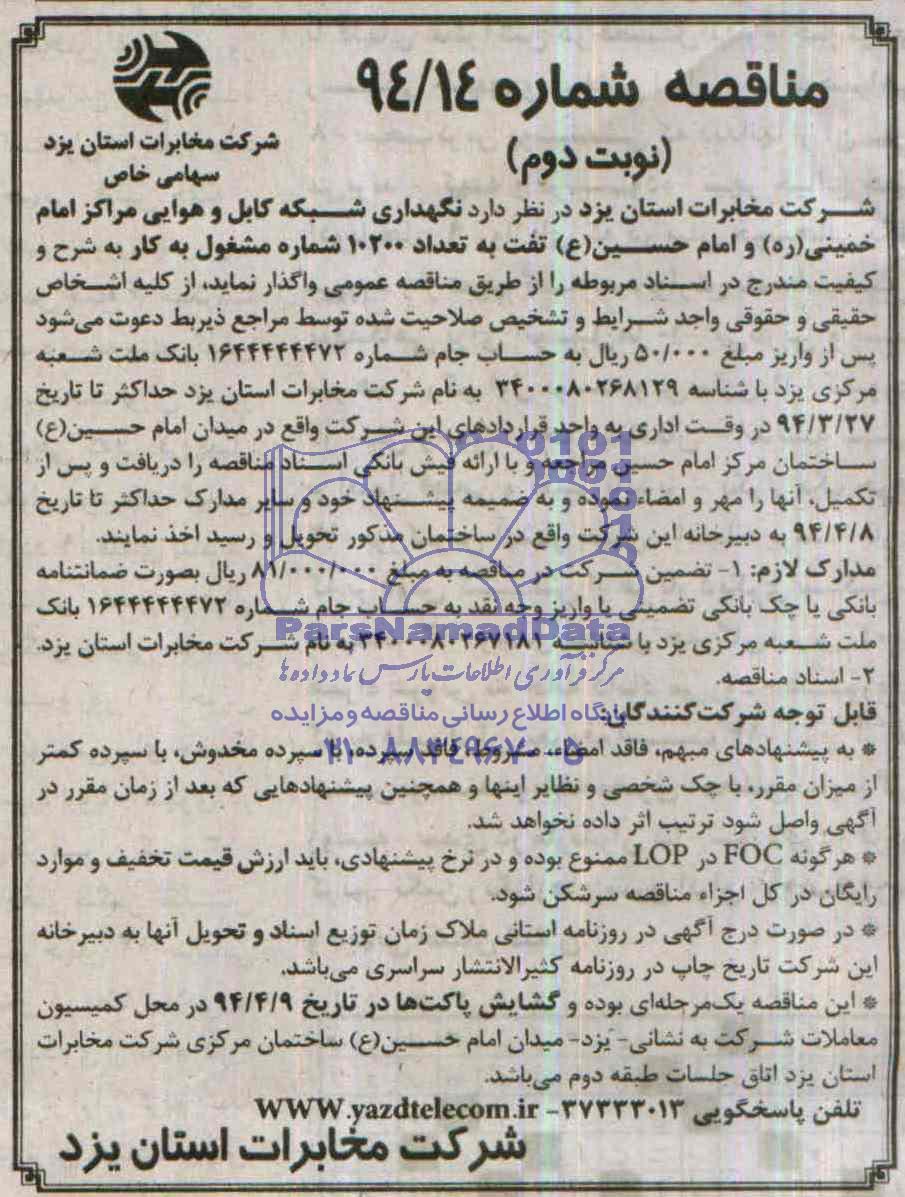 مناقصه شماره ۹۴/۱۴
(نوبت دوم)
شرکت مخابرات استان یزد
سهامی خاص
شرکت مخابرات استان یزد در نظر دارد نگهداری شبکه کابل و هوایی مراکز امام
خمینی(ره) و امام حسین(ع) تفت به تعداد ۱۰۲۰۰ شماره مشغول به کار به شرح و
کیفیت مندرج در اسناد مربوطه را از طریق مناقصه عمومی واگذار نماید، از کلیه اشخاص
حقیقی و حقوقی واجد شرایط و تشخیص صلاحیت شده توسط مراجع ذیربط دعوت می‌شود
پس از واریز مبلغ ۵۰/۰۰۰ ریال به حساب جام شماره ۱۶۴۴۴۴۴۴۷۲ بانک ملت شعبه
مرکزی یزد با شناسه ۳۴۰۰۰۸۰۲۶۸۱۲۹ به نام شرکت مخابرات استان یزد حداکثر تا تاریخ
۹۴/۳/۲۷ در وقت اداری به واحد قراردادهای این شرکت واقع در میدان امام حسین(ع)
ساختمان مرکز امام حسین مراجعه و با ارائه فیش بانکی اسناد مناقصه را دریافت و پس از
تکمیل، آنها را مهر و امضاء نموده و به ضمیمه پیشنهاد خود و سایر مدارک حداکثر تا تاریخ
۹۴/۴/۸ به دبیرخانه این شرکت واقع در ساختمان مذکور تحویل و رسید اخذ نمایند.
مدارک لازم: ۱- تضمین شرکت در مناقصه به مبلغ ۸۱/۰۰۰/۰۰۰ ریال بصورت ضمانتنامه
بانکی یا چک بانکی تضمینی یا واریز وجه نقد به حساب جام شماره ۱۶۴۴۴۴۴۴۷۲ بانک
ملت شعبه مرکزی یزد با شناسه ۳۴۰۰۰۸۰۲۶۷۱۸۱ به نام شرکت مخابرات استان یزد.
۲- اسناد مناقصه.
قابل توجه شرکت‌کنندگان:
* به پیشنهادهای مبهم، فاقد امضاء، مشروط، فاقد سپرده، با سپرده مخدوش، با سپرده کمتر
از میزان مقرر، با چک شخصی و نظایر اینها و همچنین پیشنهادهایی که بعد از زمان مقرر در
آگهی واصل شود ترتیب اثر داده نخواهد شد.
* هرگونه FOC در LOP ممنوع بوده و در نرخ پیشنهادی، باید ارزش قیمت تخفیف و موارد
رایگان در کل اجزاء مناقصه سرشکن شود.
* در صورت درج آگهی در روزنامه استانی ملاک زمان توزیع اسناد و تحویل آنها به دبیرخانه
این شرکت تاریخ چاپ در روزنامه کثیرالانتشار سراسری می‌باشد.
* این مناقصه یک‌مرحله‌ای بوده و گشایش پاکت‌ها در تاریخ ۹۴/۴/۹ در محل کمیسیون
معاملات شرکت به نشانی- یزد- میدان امام حسین(ع) ساختمان مرکزی شرکت مخابرات
استان یزد اتاق جلسات طبقه دوم می‌باشد.
تلفن پاسخگویی ۳۷۲۳۳۰۱۳- WWW.yazdtelecom.ir
شرکت مخابرات استان یزد
ParsNamadData
مرکز فرآوری اطلاعات پارس نماد داده ها
پایگاه اطلاع رسانی مناقصه و مزایده
۰۲۱-۸۸۳۴۹۶۷۰-۵